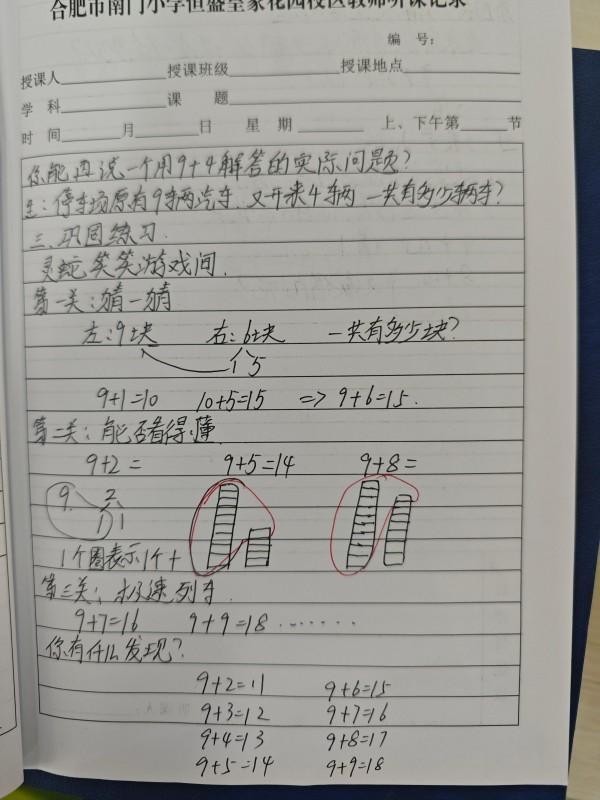 合肥市南门小学恒盛皇家花园校区教师听课记录
编 号:
授课人 授课班级 授课地点
学 科 课 题
时 间 月 日 星 期 上、下午第 节
你能再说一个用9+4解答的实际问题?
生:停车场原有9辆汽车,又开来4车辆 一共有多少辆车?
三、巩固练习.
灵蛇笑笑游戏间.
第一关:猜一猜
左:9块 右:6块 一共有多少块?
1 5
9+1=10 10+5=15 => 9+6=15.
第二关:能否看得懂
9+2= 9+5=14 9+8=
9 2
1 1
1个圈表示1个十
第三关:极速列车
9+7=16 9+9=18 ······
你有什么发现?
9+2=11 9+6=15
9+3=12 9+7=16
9+4=13 9+8=17
9+5=14 9+9=18